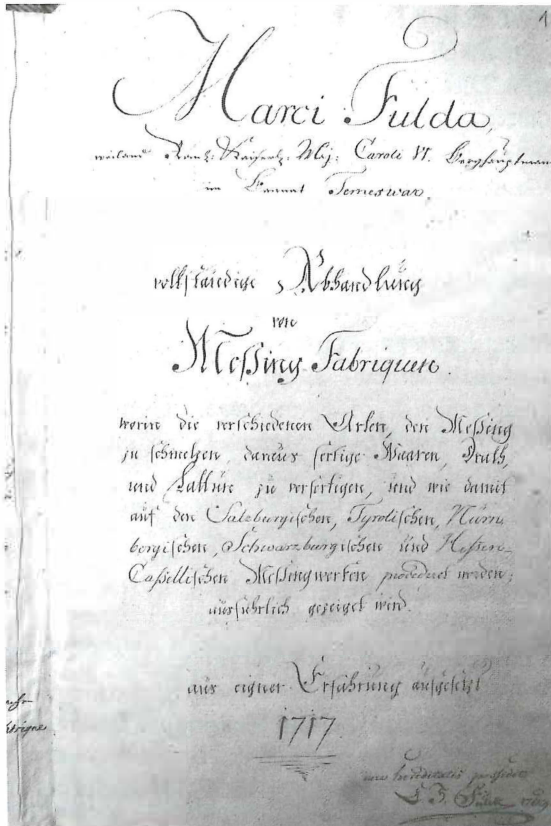 1
Marci Fulda,
weiland Röm: Kaiserl: Maj: Caroli VI. Berghauptmann
im Bannat Temeswar,
vollständige Abhandlung
von
Messing Fabriquen.
worin die verschiedenen Arten, den Messing
zu schmelzen, daraus fertige Waaren, Drath,
und Lattun zu verfertigen, und wie damit
auf den Salzburgischen, Tyrolischen, Nürn-
bergischen, Schwarzburgischen und Hessen-
Cassellischen Messingwerken procediret werden,
ausführlich gezeiget wird.
aus eigner Erfahrung aufgesetzt
1717